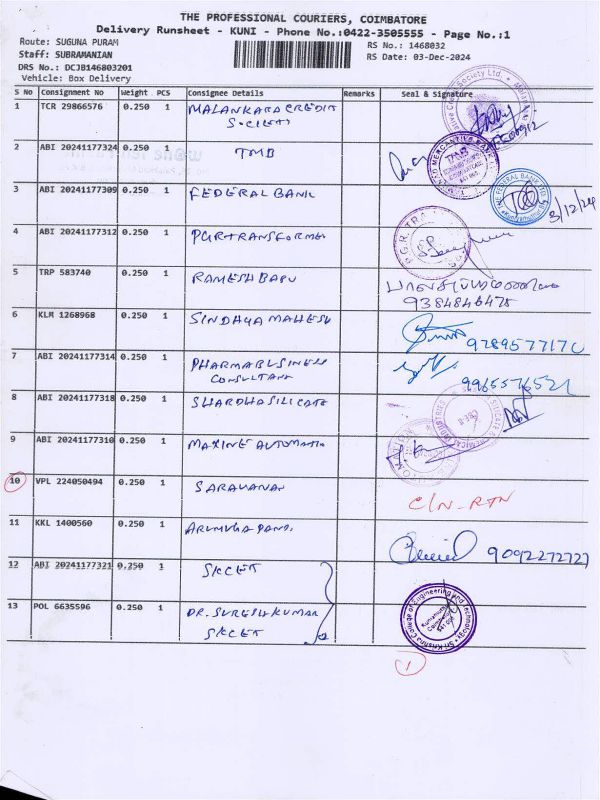 THE PROFESSIONAL COURIERS, COIMBATORE
Delivery Runsheet - KUNI - Phone No.:0422-3505555 - Page No.:1
Route: SUGUNA PURAM
Staff: SUBRAMANIAN
DRS No.: DCJB146803201
Vehicle: Box Delivery
RS No.: 1468032
RS Date: 03-Dec-2024
S No Consignment No Weight PCS Consignee Details Remarks Seal & Signature
1 TCR 29866576 0.250 1 MALANKARA CREDIT
SOCIETY
2 ABI 20241177324 0.250 1 TMB
3 ABI 20241177309 0.250 1 FEDERAL BANK
THE FEDERAL BANK LTD
3/12/24
4 ABI 20241177312 0.250 1 PGR TRANSFORMER
5 TRP 583740 0.250 1 RAMESH BABU
9384846478
6 KLM 1268968 0.250 1 SINDHYA MAHESH
9789577170
7 ABI 20241177314 0.250 1 PHARMA BUSINESS
CONSULTANT
9965576521
8 ABI 20241177318 0.250 1 SHARDHA SILICATE
9 ABI 20241177310 0.250 1 MAXINE AUTOMATIO
10 VPL 224050494 0.250 1 SARAVANAN
C/N-RTN
11 KKL 1400560 0.250 1 ARUMUGA PANDI
9092272727
12 ABI 20241177321 0.250 1 SKCET
13 POL 6635596 0.250 1 DR. SURESH KUMAR
SKCET
Sri Krishna College of Engineering and Technology
1